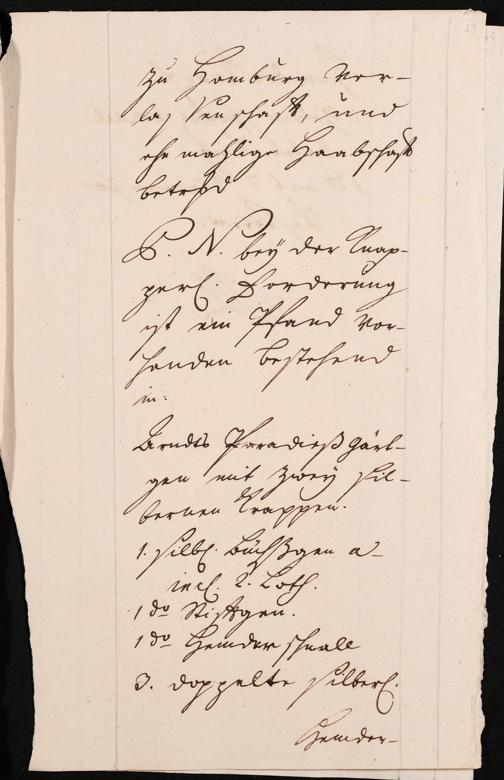 zu Homburg Ver-
lassenschafft, und
ehemahlige Haabschafft
betrfd
P. N. bey der Knap-
perl. Forderung
ist ein Pfand vor-
handen bestehend
in:
Arndts Paradieß gärt-
gen mit zwey sil-
bernen Krappen.
1. silb. Büchßgen a
incl. 2. Loth.
1 do Stifftgen.
1 do Hemderschnall
3. doppelte silberl.
Hemder-